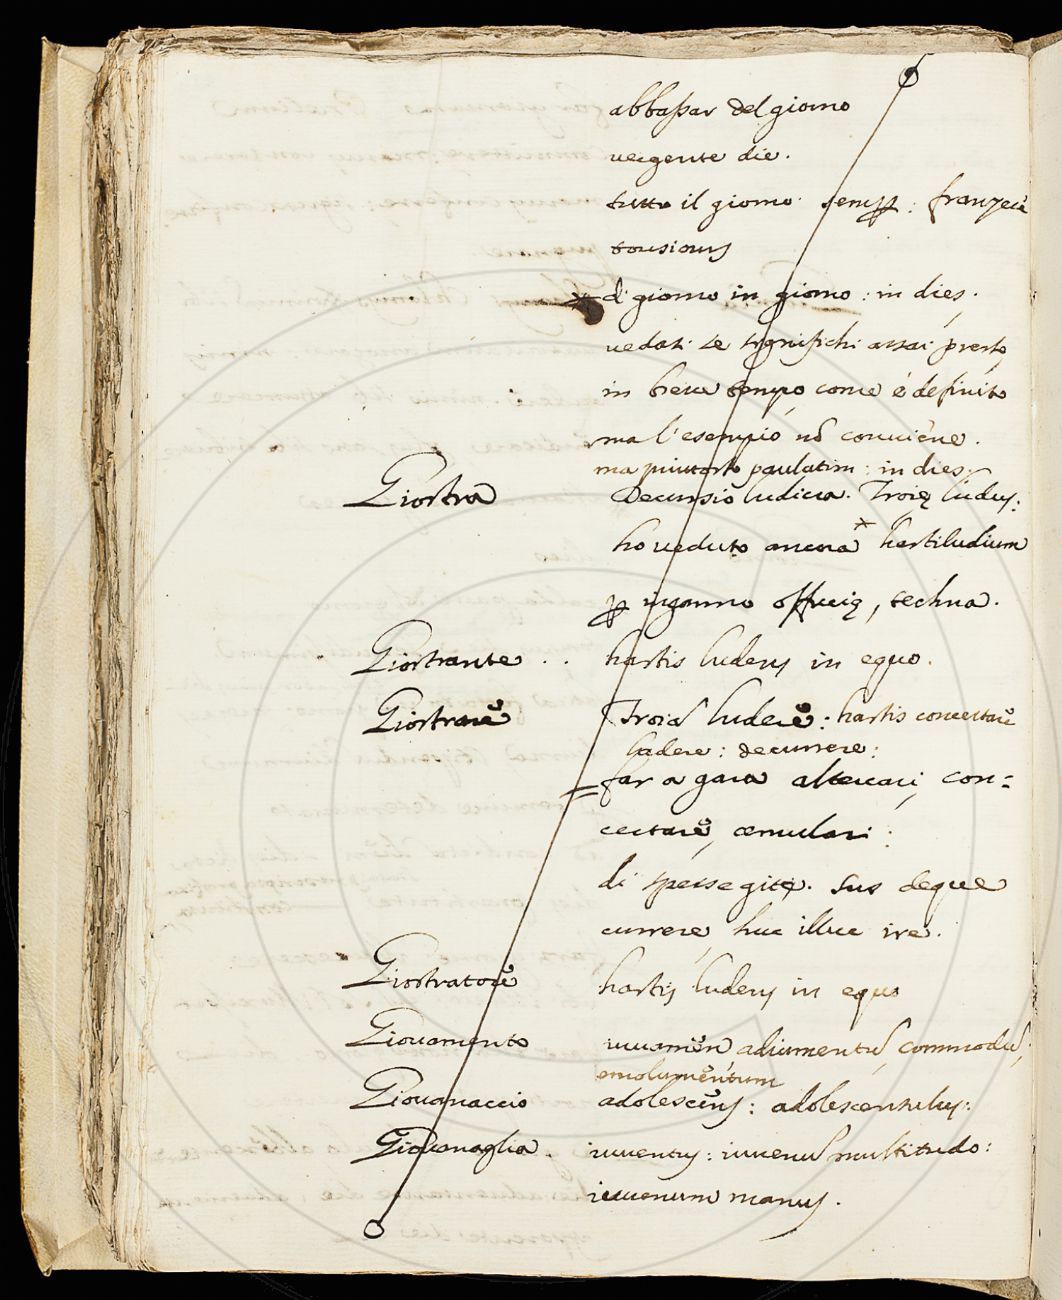 abbaßar del giorno
uergente die.
tutto il giorno. semp : 
di giorno in giorno : in dies.
uedasi se significhi assai presto
in breue tempo, come é definito
ma l'esempio nõ conuiene.
ma piutosto paulatim : in dies.
Giostra Decursio ludicra. Troię ludus:
ho ueduto ancora hastiludium
p inganno offucię, techna.
Giostrante .. hastis ludens in equo.
Giostrare Troiã ludere : hastis concertare
ludere : decurrere :
far a gara altercari, con=
certare, æmulari :
di spesse gite. sus deque
currere huc illuc ire.
Giostratore hastis ludens in equo
Giouamento iuuamen adiumentũ, commodũ,
emolumentum
Giouanaccio adolescens : adolescentulus :
Giouanaglia . iuuentus : iuuenũ multitudo :
iuuenum manus .